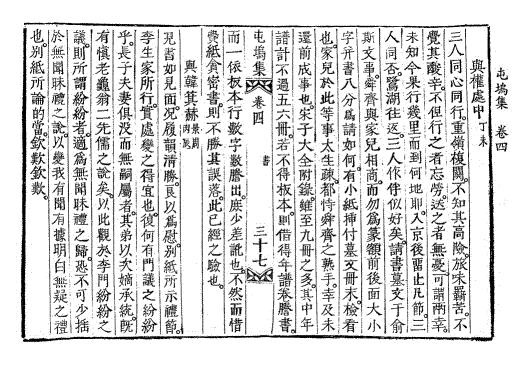 屯塢集 卷四
與權處中 丁未
三人同心同行。重嶺複關。不知其高險。旅味羈苦。不
覺其酸辛。不但行之者忘勞。送之者無憂。可謂兩幸。
未知今果行幾里而到何地耶。入京後留止凡節。三
人同否。篙湖往返。三人作伴似好矣。請書墓文于俞
斯文事。舜齊與家兒相商。而勿爲篆額前後面大小
字幷書八分爲請如何。有小紙揷付墓文冊末。檢看
也。家兒於此等事太生疎。都恃舜齊之熟手。幸及未
還前成事也。宋子大全附錄。雖至九冊之多。其中年
譜計不過五六冊。若不得板本。則借得年譜卷謄書。
屯塢集 卷四 書 三十七
而一依板本行數字數謄出。庶少差訛也。不然而借
費紙貪密書則不勝其誤落。此已經之驗也。
與韓箕赫
兄書如見面。况履韻淸勝。良以爲慰。別紙所示禮節。
李生家所行。實處變之得宜也。復何有門議之紛紛
乎。長子夫妻俱沒而無嗣屬者。其弟以次嫡承統。旣
有愼老龜翁二先儒之說矣。以此觀於李門紛紛之
議則所謂紛紛者。適爲無聞昧禮之歸。恐不可少撓
於無聞昧禮之說。以變我有聞有據明白無疑之禮
也。別紙所論的當。欽歎欽歎。